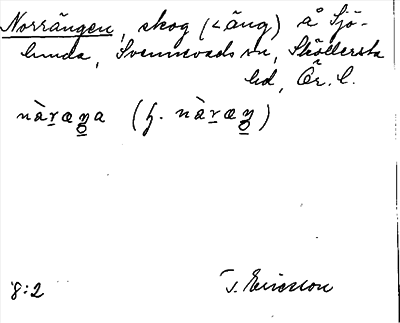 Norrängen, skog (< äng) å Sjö-
lunda, Svennevads sn, Sköllersta
hd, Ör. l.
nàræŋa (f. nàræŋ)
8:2 T. Ericsson